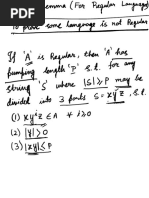 Lemma (For Regular Language)
To prove some language is not Regular
If 'A' is Regular, then 'A' has
pumping length 'P' s.t. for any
string 'S' where |S| ≥ P may be
divided into 3 parts S = xyz s.t.
(1) xyⁱz ∈ A ∀ i ≥ 0
(2) |y| > 0
(3) |xy| ≤ P